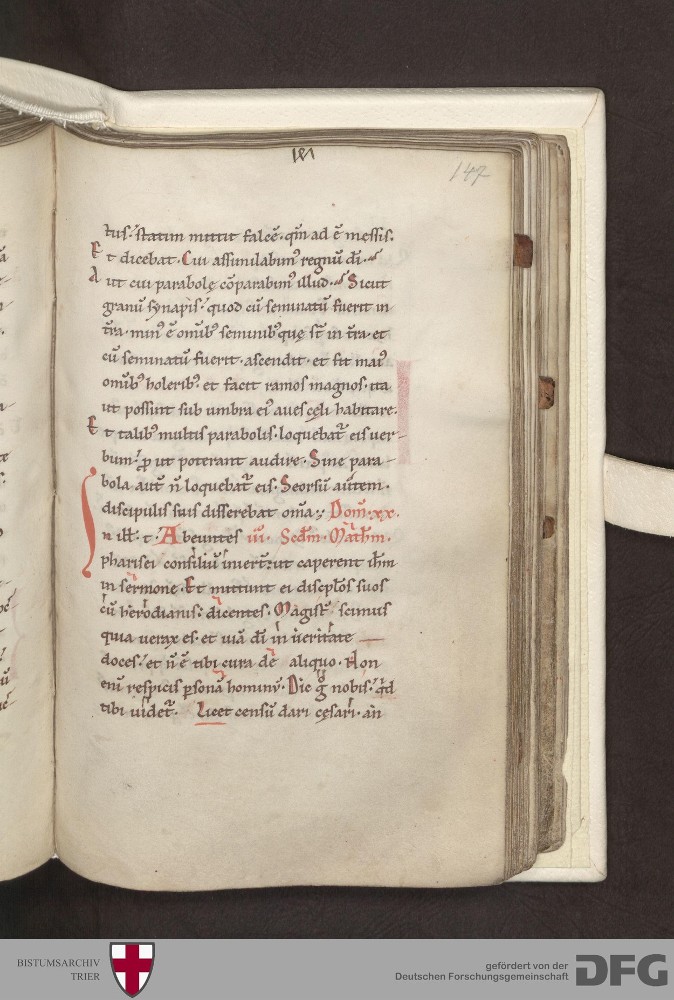 147
tus. statim mittit falcē. qm̄ ad ē męssis.
Et dicebat. Cui assimilabim᾽ regnū dī.
Aut cui parabolę cōparabim᾽ illud. Sicut
granū synapis. quod cū seminatū fuerit in
t̄ra. min᾽ ē omīb᾽ seminib᾽ quę st̄ in t̄ra. et
cū seminatū fuerit. ascendit. et fit mai᾽
omīb᾽ holerib᾽. et facit ramos magnos. ita
ut possint sub umbra ei᾽ aues cęli habitare.
Et talib᾽ multis parabolis. loquebat᷑ eis uer-
bum. ꝓ ut poterant audire. Sine para-
bola aut̄ n̄ loquebat᷑ eis. Seorsū autem.
discipulis suis disserebat om̄a. Dom̄. xx.
In ill̄. t. Abeuntes iii. Scdm̄. Mathm̄.
pharisei consiliū iniert. ut caperent ihm̄
in sermone. Et mittunt ei discip̄los suos
cū herodianis. dicentes. Magist᷑ scimus
quia uerax es. et uiā dī in ueritate
doces. et n̄ ē tibi cura de aliquo. Non
enī respicis psonā hominū. Dic g̊ nobis. qd̄
tibi uidet᷑. Licet censū dari cęsari. an
BISTUMSARCHIV
TRIER
gefördert von der
Deutschen Forschungsgemeinschaft
DFG